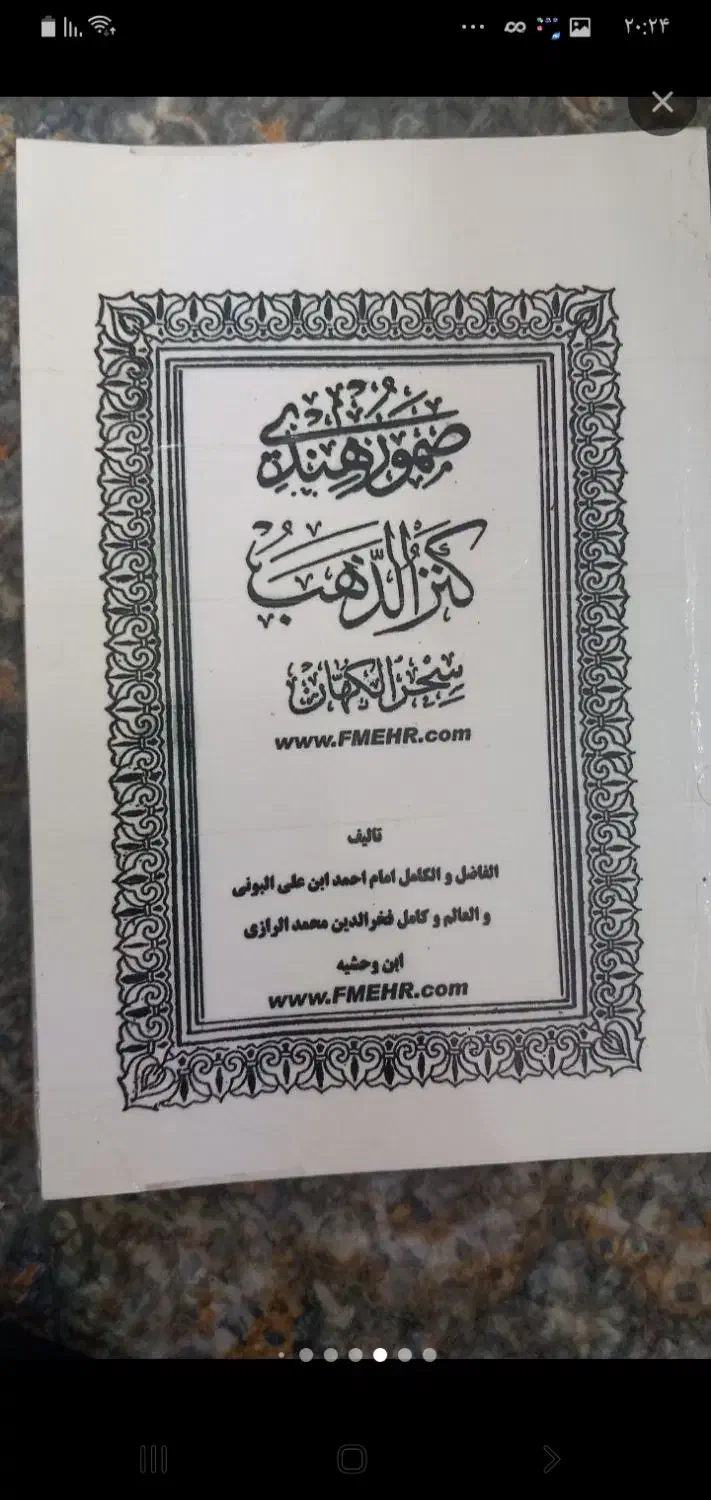 ۲۰:۲۴
ضمور هندی
كنز الذهب
سحر الكهان
www.FMEHR.com
تالیف
الفاضل و الكامل امام احمد ابن علی البونی
و العالم و كامل فخرالدین محمد الرازی
ابن وحشیه
www.FMEHR.com